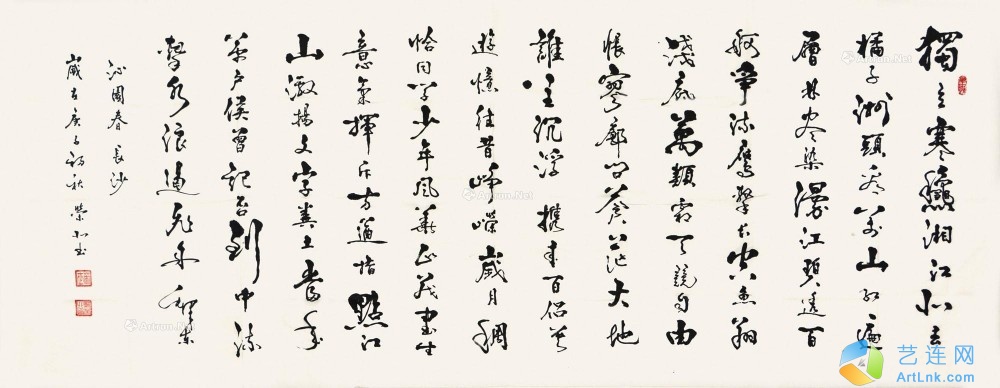 獨立寒龝湘江北去
橘子洲頭看万山紅遍
層林盡染漫江碧透百
舸爭流鷹擊長空魚翔
淺底萬類霜天競自由
悵寥廓問蒼茫大地
誰主沉浮攜來百侶曾
遊憶往昔崢嶸歲月稠
恰同學少年風華正茂書生
意氣揮斥方遒指點江
山激揚文字糞土當年
萬戶侯曾記否到中流
擊水浪遏飛舟
沁園春 長沙
歲在庚子初秋 榮書
Artron.Net
艺连网
ArtLnk.com